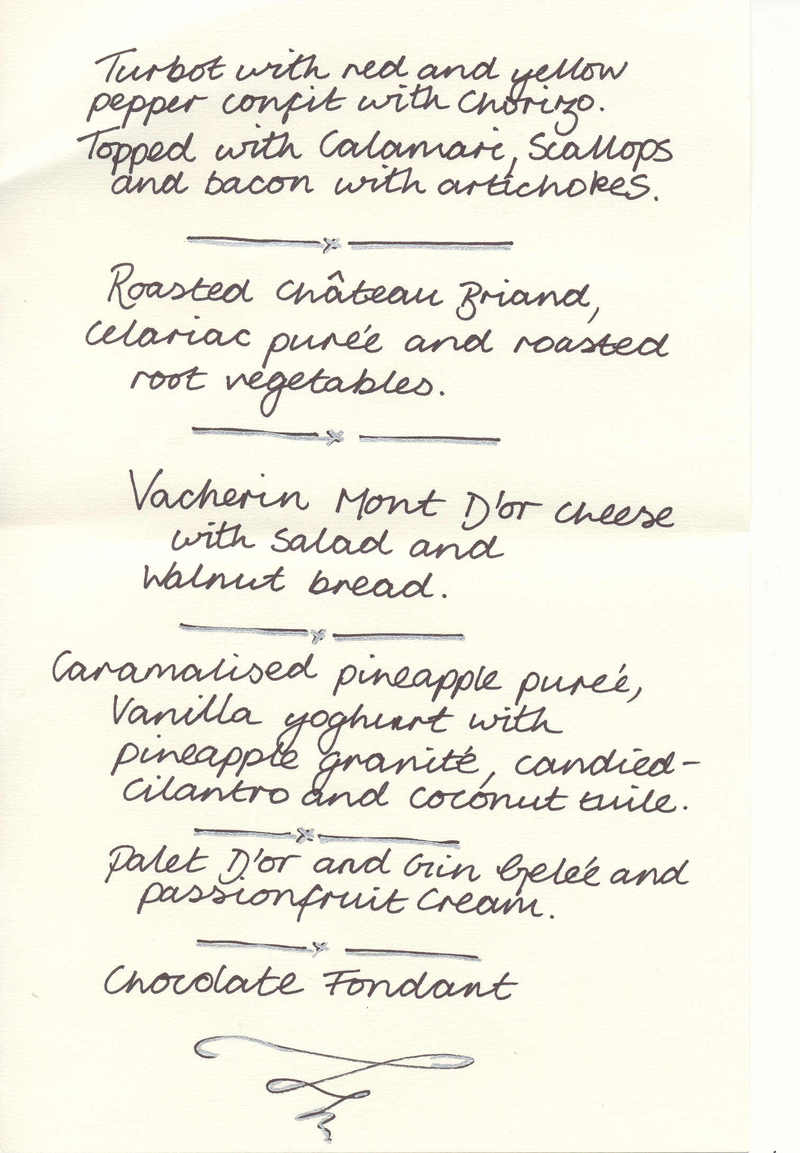 Turbot with red and yellow
pepper confit with Chorizo.
Topped with Calamari, Scallops
and bacon with artichokes.
Roasted Château Briand,
Celariac purée and roasted
root vegetables.
Vacherin Mont D'or cheese
with Salad and
Walnut bread.
Caramalised pineapple purée,
Vanilla yoghurt with
pineapple granité, candied-
cilantro and coconut tuile.
Palet D'or and Gin Gelée and
passionfruit Cream.
Chocolate Fondant